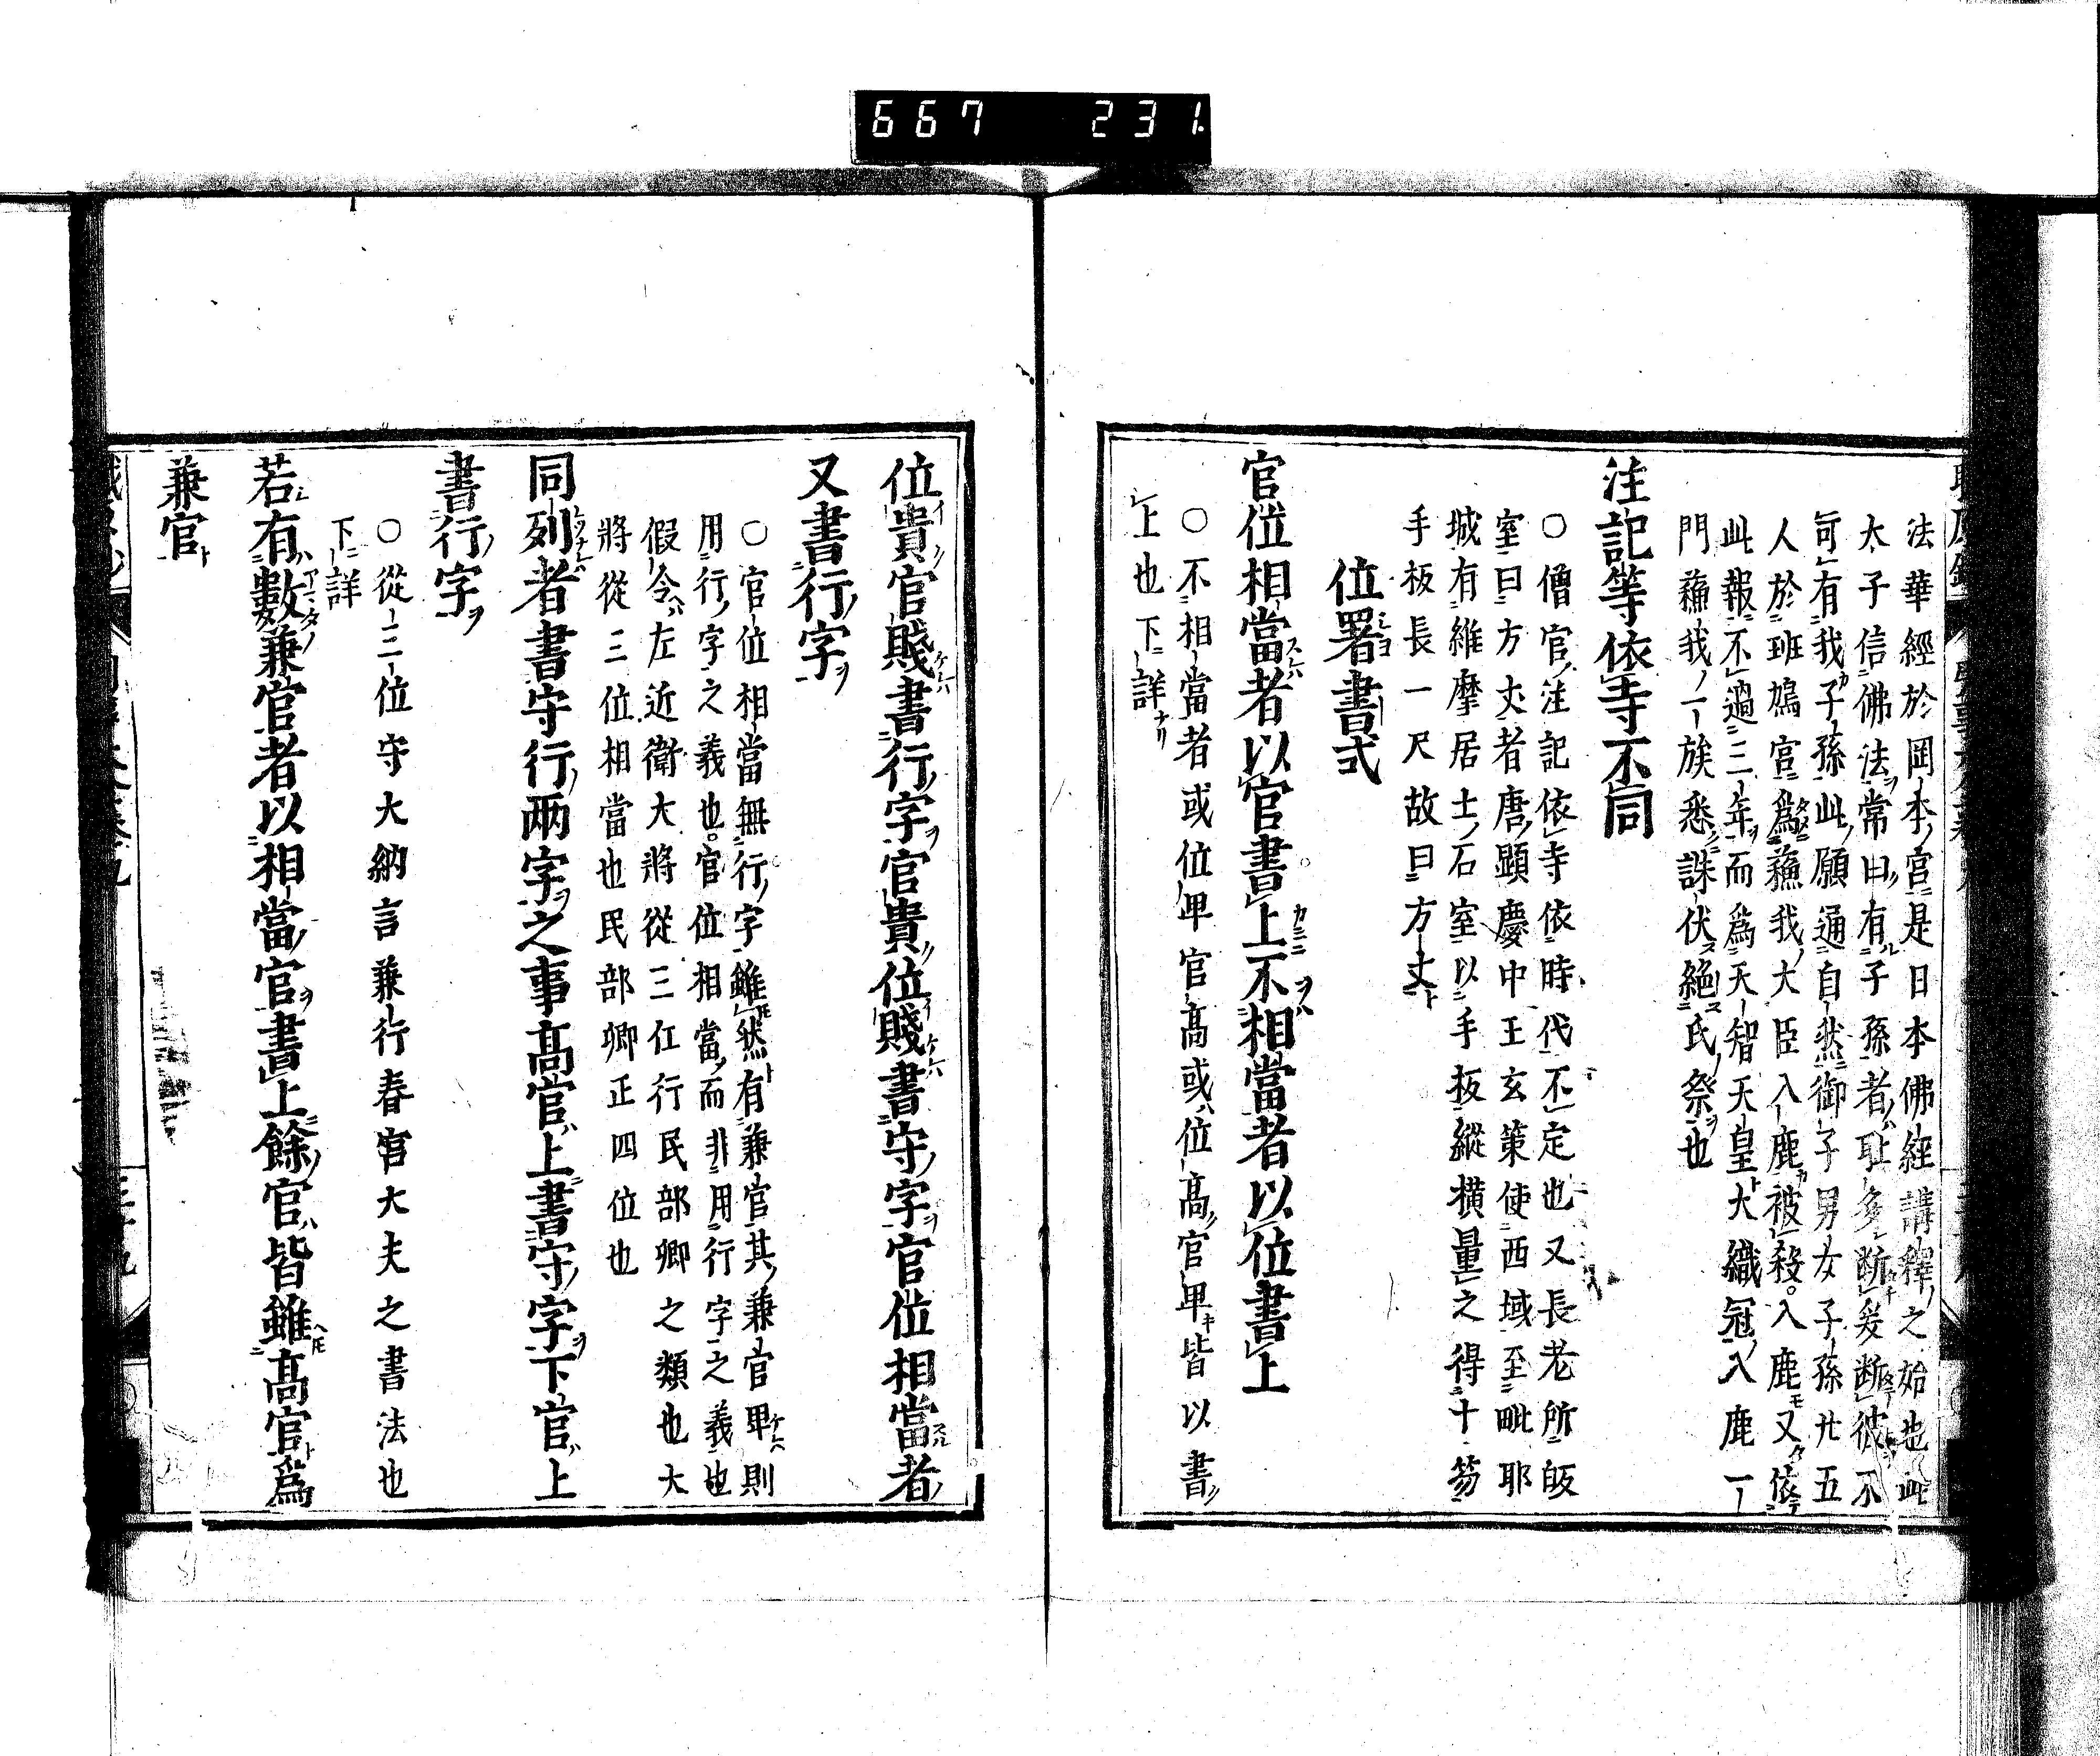 667 231
法華經於岡本宮是日本佛經講釋之始也此
太子信佛法常曰有子孫者耻多断爰断彼不
可有我子孫此願通自然御子男女子孫廿五
人於班鳩宮爲蘓我大臣入鹿被殺入鹿又依
此報不過三年而爲天智天皇大織冠入鹿一
門蘓我一族悉誅伏絕氏祭也
注記等依寺不同
○僧官注記依寺依時代不定也又長老所皈
室曰方丈者唐顯慶中王玄策使西域至毗耶
城有維摩居士石室以手板縱横量之得十笏
手板長一尺故曰方丈
位署書式
官位相當者以官書上不相當者以位書上
○不相當者或位卑官高或位高官卑皆以書
上也下詳
位貴官賤書行字官貴位賤書守字官位相當者
又書行字
○官位相當無行字雖然有兼官其兼官卑則
用行字之義也官位相當而非用行字之義也
假令左近衛大將從三位行民部卿之類也大
將從三位相當也民部卿正四位也
同列者書守行兩字之事高官上書守字下官上
書行字
○從二位守大納言兼行春宮大夫之書法也
下詳
若有數兼官者以相當官書上餘官皆雖高官爲
兼官